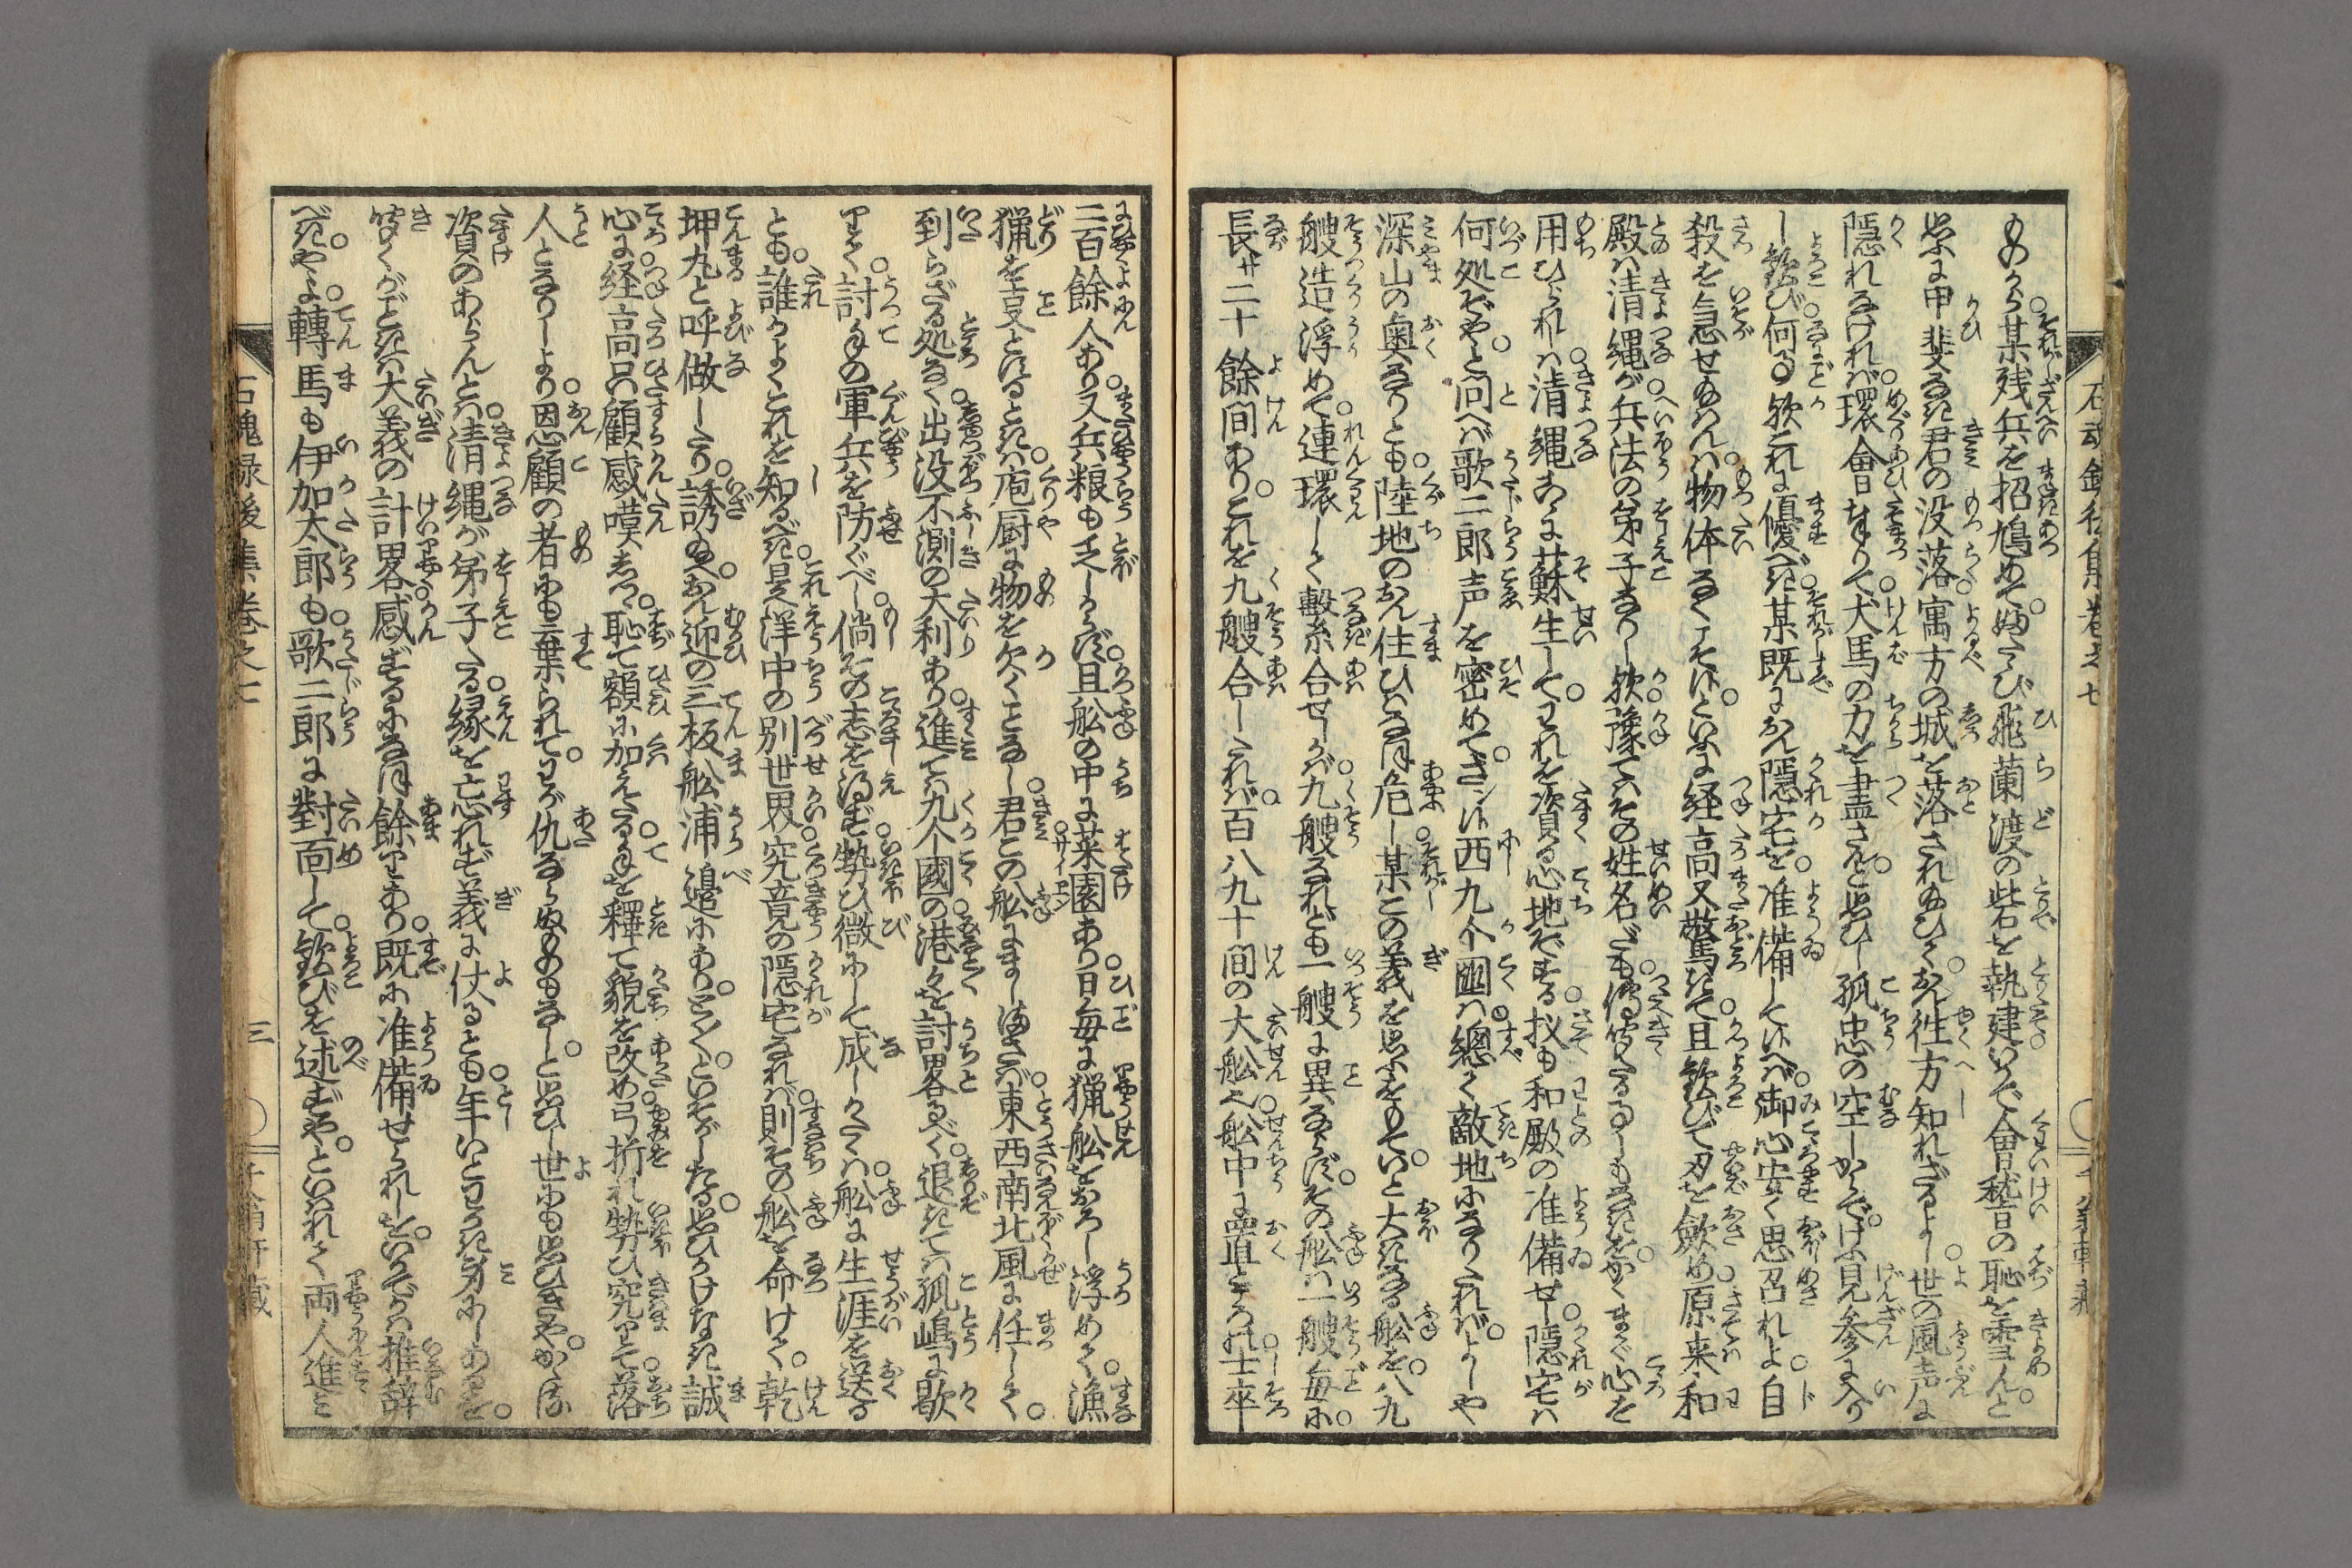 ものから某残兵を招鳩めて。ふたゝび飛蘭渡の砦を執建いで會稽の恥を雪んと
思ふに甲斐なき君の没落寓方の城を落され給ひて。おん往方知れざるよし世の風声に
隠れなければ。環會奉りて犬馬の力を盡さんと。思ひし孤忠の空しからで。けふ見参に入り
し歓び何事か欤これに優べき。某既におん隠宅を。准備して候へば御心安く思召れよ。自
殺を急せ給はんは物体なくこそ候と。いふに経高又驚きて且歓びて刃を斂め原来和
殿は清縄が兵法の弟子なりし欤豫てその姓名ごも傳聞たる事しもなきを。かくまで心を
用ひられしは清縄こゝに蘇生して。われを資る心地ぞする。扨も和殿の准備せし隠宅は
何処ぞや。と問へば歌二郎声を密めて。さン候西九个國は總て敵地になりたれば。よしや
深山の奥なりとも。陸地のおん住ひはなほ危し某この義を思ふをもて。いと大きなる船を。八九
艘造り浮めて。連環して繋糸合せしかば九艘なれども一艘に異ならず。その船は一艘毎に。
長サ二十餘間あり。これを九艘合したれば。百八九十間の大船也船中に置ところの士卒
二百餘人あり又兵粮も乏しからず。且船の中に菜園あり日毎に猟船をおろし浮めて。漁
猟を旨とするときは。庖厨に物を欠くことなし。君この船にましまさば東西南北風に任して。
到らざる処なく出没不測の大利あり。進ては九个國の港々を討畧るべく。退きては孤嶋に歇
りて。討手の軍兵を防ぐべし。倘その志を得ず勢ひ微にして成しがたくは。船に生涯を送る
とも。誰かよくこれを知るべき。是洋中の別世界究竟の隠宅なれば。則その船を命けて。乾
坤丸と呼做したり。誘給へ。おん迎の三板船浦邊にあり。とく〳〵。といそがしたる。思ひかけなき誠
心に。経高只顧感嘆しつゝ。恥て額に加えたる手を釋て貌を改め弓折れ勢ひ究りて落
人となりしより。恩顧の者にも棄られて。わが仇ならぬものもなし。と思ひし世にも思ひきや。かゝる
資のあらんとは。清縄が弟子たる縁を忘れず義に仗るとも。年いとわかき身にしあるを。
聞くがごときは大義の計畧。感ずるになほ餘りあり。既に准備せられしを。いかでかは推辞
べきや。轉馬も伊加太郎も。歌二郎に對面して。歓びを述ずや。といはれて両人進み
石魂録後集巻之七
三